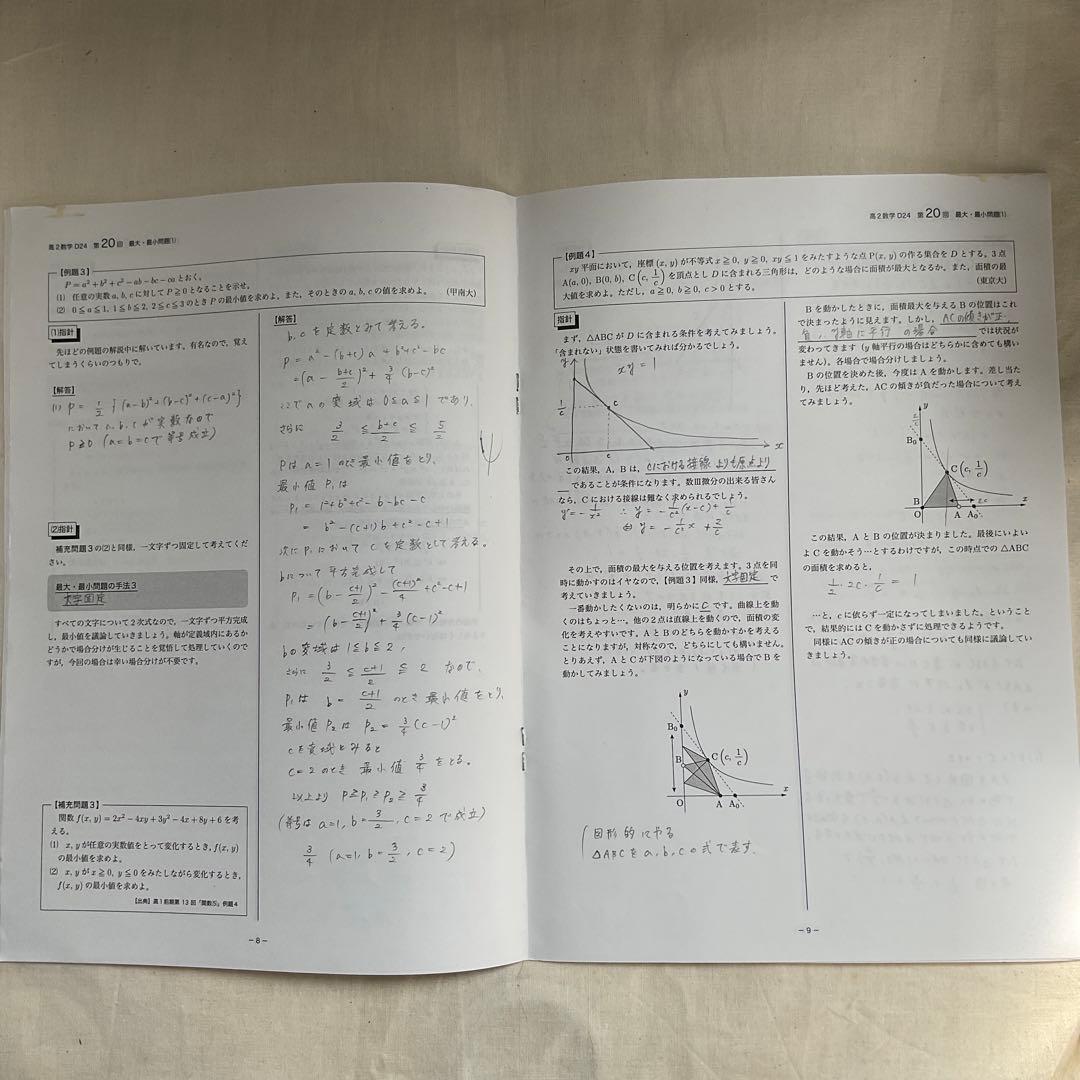 高2数学 D24 第20回 最大・最小問題(1)
【例題3】
P=a²+b²+c²−ab−bc−ca とおく。
(1) 任意の実数 a, b, c に対して P≧0 となることを示せ。
(2) 0≦a≦1, 1≦b≦2, 2≦c≦3 のとき P の最小値を求めよ。また, そのときの a, b, c の値を求めよ。 (甲南大)
(1)指針
先ほどの例題の解説中に解いています。有名なので, 覚え
てしまうくらいのつもりで。
【解答】
(1) P = 1/2 {(a-b)²+(b-c)²+(c-a)²}
において a, b, c が実数なので
P≧0 (a=b=c で等号成立)
(2)指針
補充問題3の(2)と同様, 一文字ずつ固定して考えてくだ
さい。
最大・最小問題の手法3
文字固定
すべての文字について2次式なので, 一文字ずつ平方完成
し, 最小値を議論していきましょう。軸が定義域内にあるか
どうかで場合分けが生じることを覚悟して処理していくので
すが, 今回の場合は幸い場合分けが不要です。
【補充問題3】
関数 f(x, y)=2x²−4xy+3y²−4x+8y+6 を考
える。
(1) x, y が任意の実数値をとって変化するとき, f(x, y)
の最小値を求めよ。
(2) x, y が x≧0, y≦0 をみたしながら変化するとき,
f(x, y) の最小値を求めよ。
【出典】高1前期第13回「関数(5)」例題4
【解答】
b, c を定数とみて考える。
P = a² − (b+c)a + b²+c²−bc
= (a − (b+c)/2)² + 3/4 (b−c)²
ここで a の変域は 0≦a≦1 であり,
さらに 3/2 ≦ (b+c)/2 ≦ 5/2
P は a=1 のとき最小値をとり,
最小値 P₁ は
P₁ = 1²+b²+c²−b−bc−c
= b²−(c+1)b+c²−c+1
次に P₁ において c を定数として考える。
b について平方完成して
P₁ = (b − (c+1)/2)² − (c+1)²/4 + c²−c+1
= (b − (c+1)/2)² + 3/4 (c−1)²
b の変域は 1≦b≦2,
さらに 3/2 ≦ (c+1)/2 ≦ 2 なので,
P₁ は b = (c+1)/2 のとき最小値をとり,
最小値 P₂ は P₂ = 3/4 (c−1)²
c を変域とみると
c=2 のとき 最小値 3/4 をとる。
以上より P≧P₁≧P₂≧ 3/4
(等号は a=1, b=3/2, c=2 で成立)
3/4 (a=1, b=3/2, c=2)
−8−
高2数学 D24 第20回 最大・最小問題(1)
【例題4】
xy 平面において, 座標 (x, y) が不等式 x≧0, y≧0, xy≦1 をみたすような点 P(x, y) の作る集合を D とする。3点
A(a, 0), B(0, b), C(c, 1/c) を頂点とし D に含まれる三角形は, どのような場合に面積が最大となるか。また, 面積の最
大値を求めよ。ただし, a≧0, b≧0, c>0 とする。 (東京大)
指針
まず, △ABC が D に含まれる条件を考えてみましょう。
「含まれない」状態を書いてみれば分かるでしょう。
y
xy = 1
1/c
c
o
c
x
この結果, A, B は, Cにおける接線よりも原点より
であることが条件になります。数III微分の出来る皆さん
なら, C における接線は難なく求められるでしょう。
y' = −1/x² ∴ y = −1/c² (x−c) + 1/c
⇔ y = −1/c² x + 2/c
その上で, 面積の最大を与える位置を考えます。3点を同
時に動かすのはイヤなので,【例題3】同様, 文字固定 で
考えていきましょう。
一番動かしたくないのは, 明らかに C です。曲線上を動
くのはちょっと…。他の2点は直線上を動くので, 面積の変
化を考えやすいです。A と B のどちらを動かすかを考える
ことになりますが, 対称なので, どちらにしても構いません。
とりあえず, A と C が下図のようになっている場合で B を
動かしてみましょう。
y
B₀
B
C(c, 1/c)
O
A
A₀
x
図形的にやる
△ABC を a, b, c の式で表す.
B を動かしたときに, 面積最大を与える B の位置はこれ
で決まったように見えます。しかし, ACの傾きが正,
負, y軸に平行の場合 では状況が
変わってきます (y 軸平行の場合はどちらかに含めても構い
ません)。各場合で場合分けしましょう。
B の位置を決めた後, 今度は A を動かします。差し当た
り, 先ほど考えた, AC の傾きが負だった場合について考え
てみましょう。
y
2/c
B₀
C(c, 1/c)
B
2c
O
A
A₀
x
この結果, A と B の位置が決まりました。最後にいよい
よ C を動かそう…とするわけですが, この時点での △ABC
の面積を求めると,
1/2 · 2c · 1/c = 1
…と, c に依らず一定になってしまいました。ということ
で, 結果的には C を動かさずに処理できるようです。
同様に AC の傾きが正の場合についても同様に議論してい
きましょう。
−9−